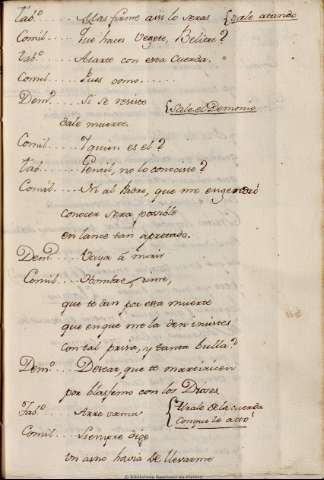 Tab.º..... Mas firme aun lo seras {sale atando
Comil..... Que haces Vegete, Belitre?
Tab.º..... Atarte con esta cuerda.
Comil..... Pues como.....
Dem.º..... Si se resiste {Sale el Demonio
dale muerte.
Comil..... Y quien es el?
Tab..... no lo conociste?
Comil..... Ni al Padre, que me engendró
conocer sera posible
en lance tan apretado.
Dem.º..... Vaya á morir
Comil..... Hombre, dime,
que te dan por esta muerte
que en que me la den insistes
con tal prisa, y tanta bulla?
Dem.º..... Desear, que te martiricen
por blasfemo con los Dioses
Tab.º..... Arre vamos {tirale de la cuerda
con que le ató
Comil..... Siempre dige
un asno havia de llevarme
Biblioteca Nacional de España